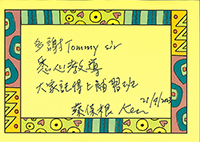 多謝Tommy sir
悉心教導
大家記得上補習班
蔡保根 Ken